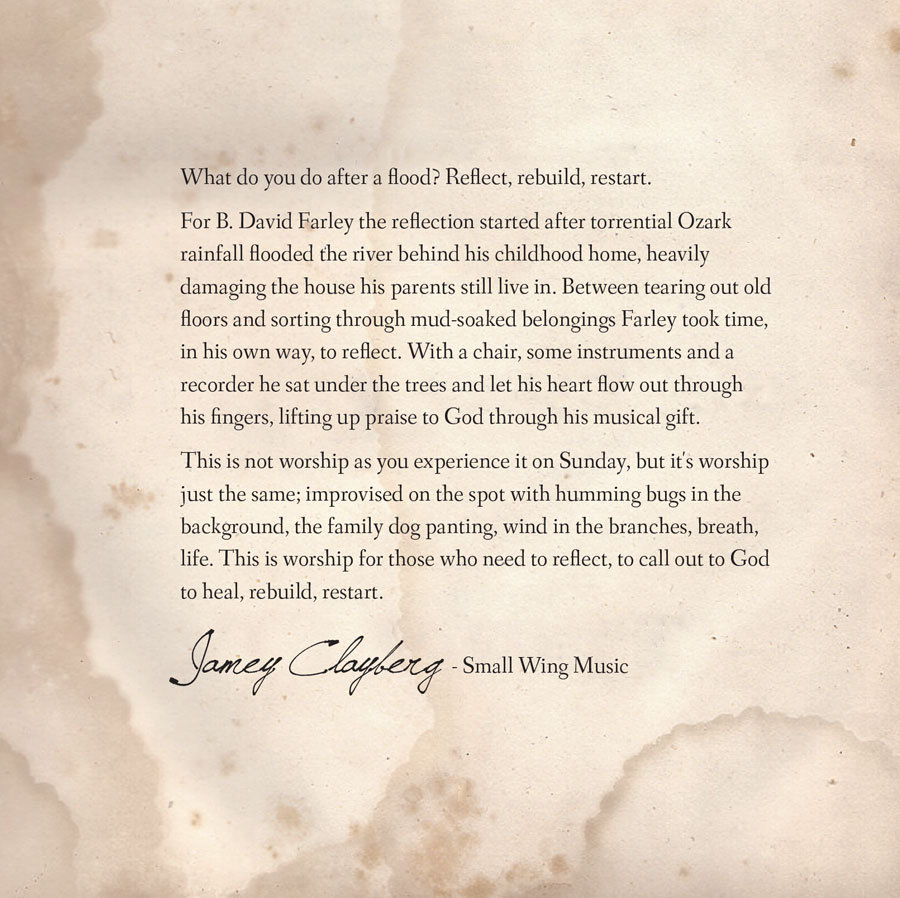 What do you do after a flood? Reflect, rebuild, restart.
For B. David Farley the reflection started after torrential Ozark
rainfall flooded the river behind his childhood home, heavily
damaging the house his parents still live in. Between tearing out old
floors and sorting through mud-soaked belongings Farley took time,
in his own way, to reflect. With a chair, some instruments and a
recorder he sat under the trees and let his heart flow out through
his fingers, lifting up praise to God through his musical gift.
This is not worship as you experience it on Sunday, but it's worship
just the same; improvised on the spot with humming bugs in the
background, the family dog panting, wind in the branches, breath,
life. This is worship for those who need to reflect, to call out to God
to heal, rebuild, restart.
Jamey Clayberg - Small Wing Music